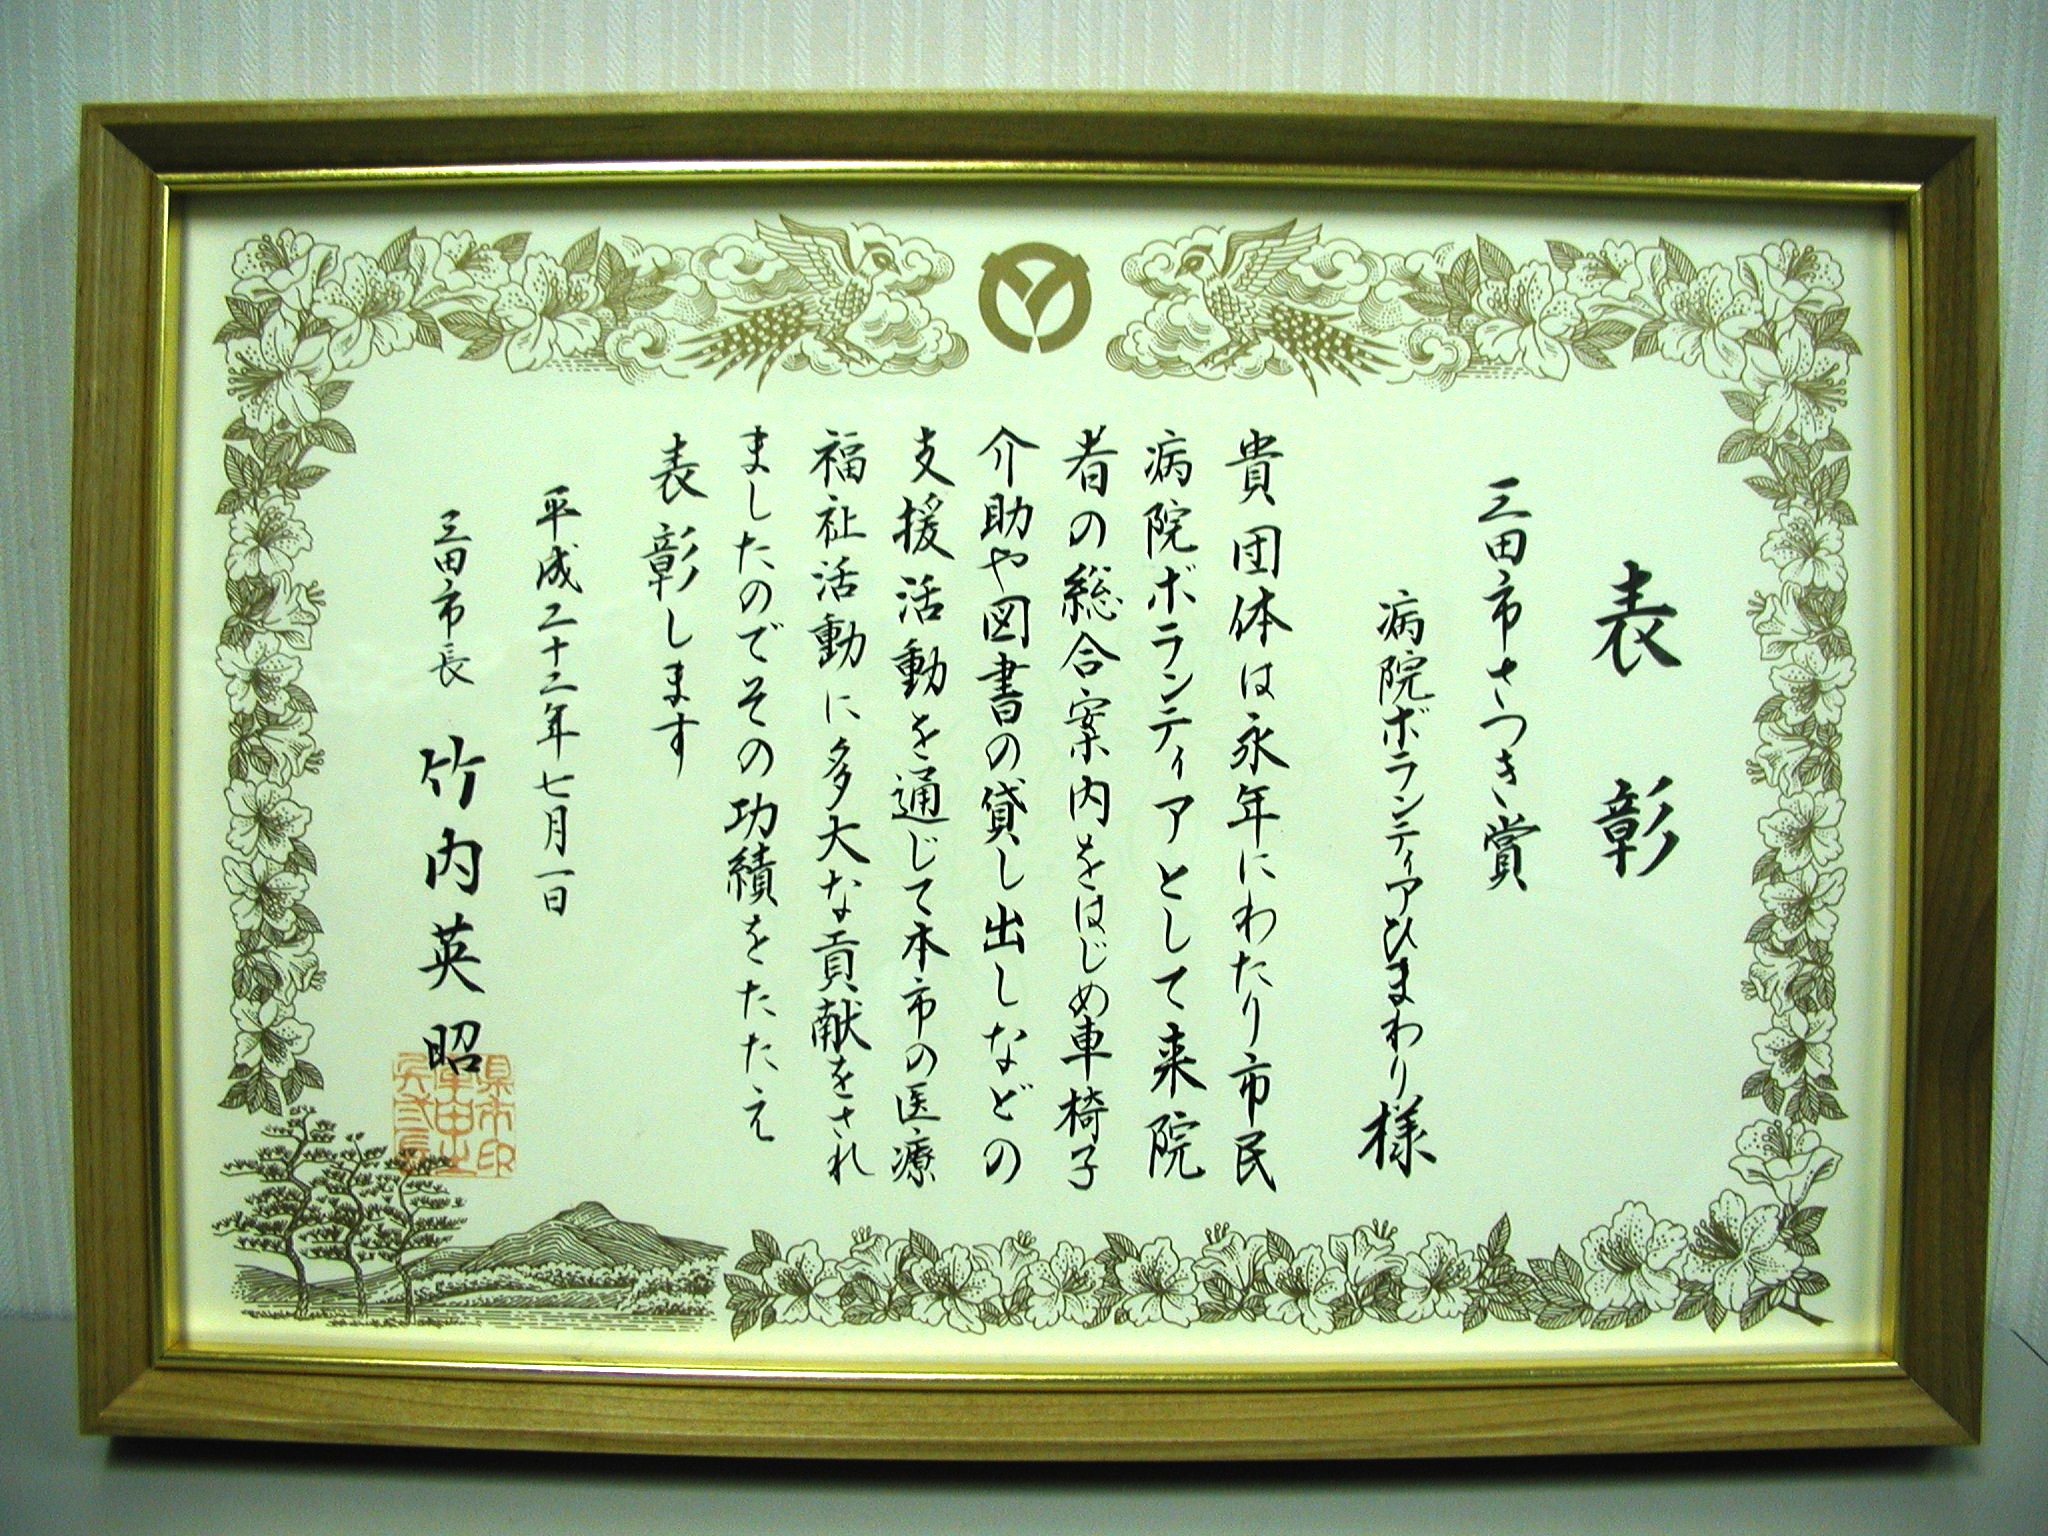 表彰
三田市さつき賞
病院ボランティアひまわり様
貴団体は永年にわたり市民
病院ボランティアとして来院
者の総合案内をはじめ車椅子
介助や図書の貸し出しなどの
支援活動を通じて本市の医療
福祉活動に多大な貢献をされ
ましたのでその功績をたたえ
表彰します
平成二十二年七月一日
三田市長 竹内英昭